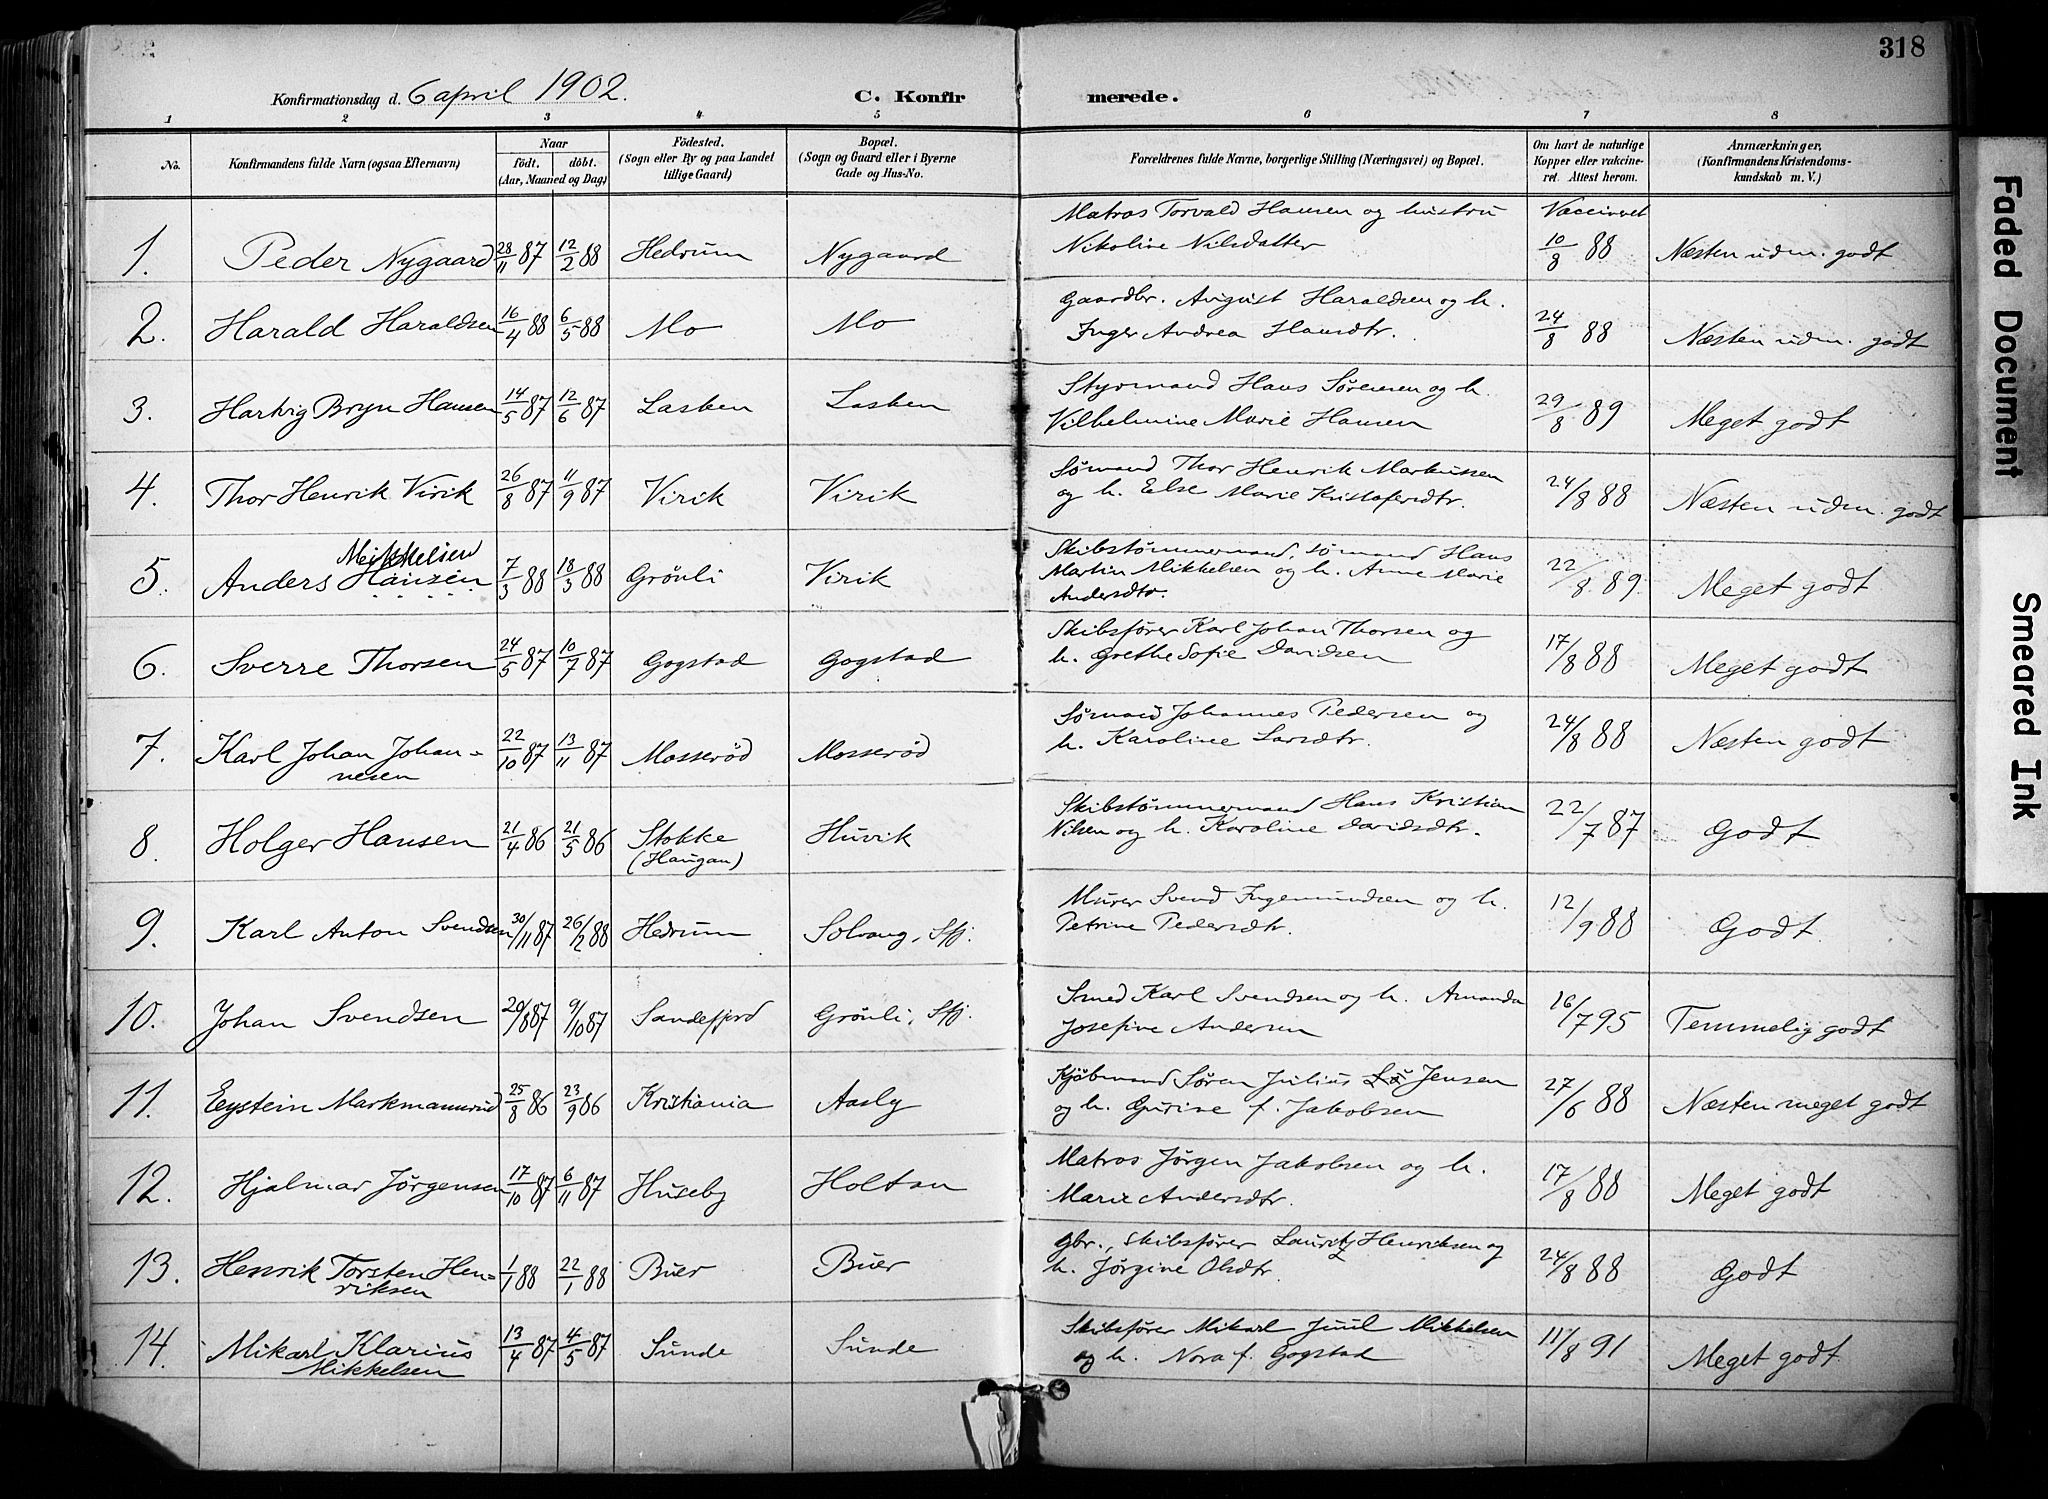 318
Konfirmationsdag d. 6 april 1902.
C. Konfirmerede.
1 2 3 4 5 6 7 8
No.
Konfirmandens fulde Narn (ogsaa Efternavn)
Naar
födt. döbt.
(Aar, Maaned og Dag)
Födested.
(Sogn eller By og paa Landet
tillige Gaard)
Bopæl.
(Sogn og Gaard eller i Byerne
Gade og Hus-No.
Forældrenes fulde Navne, borgerlige Stilling (Næringsvei) og Bopæl.
Om havt de naturlige
Kopper eller vakcine-
ret Attest herom.
Anmærkninger,
(Konfirmandens Kristendoms-
kundskab m. V.)
1. Peder Nygaard 28/11 87 12/2 88 Hedrum Nygaard
Matros Torvald Hansen og hustru
Nikoline Nilsdatter
Vaccineret
10/8 88 Næsten udm. godt
2. Harald Haraldsen 16/4 88 6/5 88 Mo Mo
Gaardbr. August Haraldsen og h.
Inger Andrea Hansdtr.
24/8 88 Næsten udm. godt
3. Hartvig Bryn Hansen 14/5 87 12/6 87 Lasken Lasken
Styrmand Hans Sørensen og h.
Vilhelmine Marie Hansen
29/8 89 Meget godt
4. Thor Henrik Virik 26/8 87 11/9 87 Virik Virik
Sømand Thor Henrik Markussen
og h. Else Marie Kristofersdtr.
24/8 88 Næsten udm. godt
5. Anders Hansen Mikkelsen 7/3 88 18/3 88 Grönli Virik
Skibstømmermand, sømand Hans
Martin Mikkelsen og h. Anne Marie
Andersdtr.
22/8 89. Meget godt
6. Sverre Thorsen 24/5 87 10/7 87 Gogstad Gogstad
Skibsfører Karl Johan Thorsen og
h. Grethe Sofie Davidsen
17/8 88 Meget godt
7. Karl Johan Johan-
nesen 22/10 87 13/11 87 Mosserød Mosserød
Sømand Johannes Pedersen og
h. Karoline Larsdtr.
24/8 88 Næsten godt
8. Holger Hansen 21/4 86 21/5 86 Stokke
(Haugan) Huvik
Skibstømmermand Hans Kristian
Nilsen og h. Karoline Davidsdtr.
22/7 87 Godt
9. Karl Anton Svendsen 30/11 87 26/2 88 Hedrum Solvang, Sfj.
Murer Svend Ingemundsen og h.
Petrine Pedersdtr.
12/9 88 Godt.
10. Johan Svendsen 20/8 87 9/10 87 Sandefjord Grönli, Sfj.
Smed Karl Svendsen og h. Amanda
Josefine Andersen
16/7 95 Temmelig godt
11. Eystein Markmannrud 25/8 86 23/9 86 Kristiania Aasly
Kjöbmand Søren Julius Jensen
og h. Gurine f. Jakobsen
27/6 88 Næsten meget godt
12. Hjalmar Jørgensen 17/10 87 6/11 87 Huseby Holtan
Matros Jørgen Jakobsen og h.
Marie Andersdtr.
17/8 88 Meget godt
13. Henrik Torsten Hen-
riksen 1/1 88 22/1 88 Buer Buer
gbr., skibsfører Lauritz Henriksen og
h. Jørgine Olsdtr.
24/8 88 Godt
14. Mikarl Klarius
Mikkelsen 13/4 87 4/5 87 Sunde Sunde
Skibsfører Mikarl Juul Mikkelsen
og h. Nora f. Gogstad
11/8 91 Meget godt
Faded Document
Smeared Ink